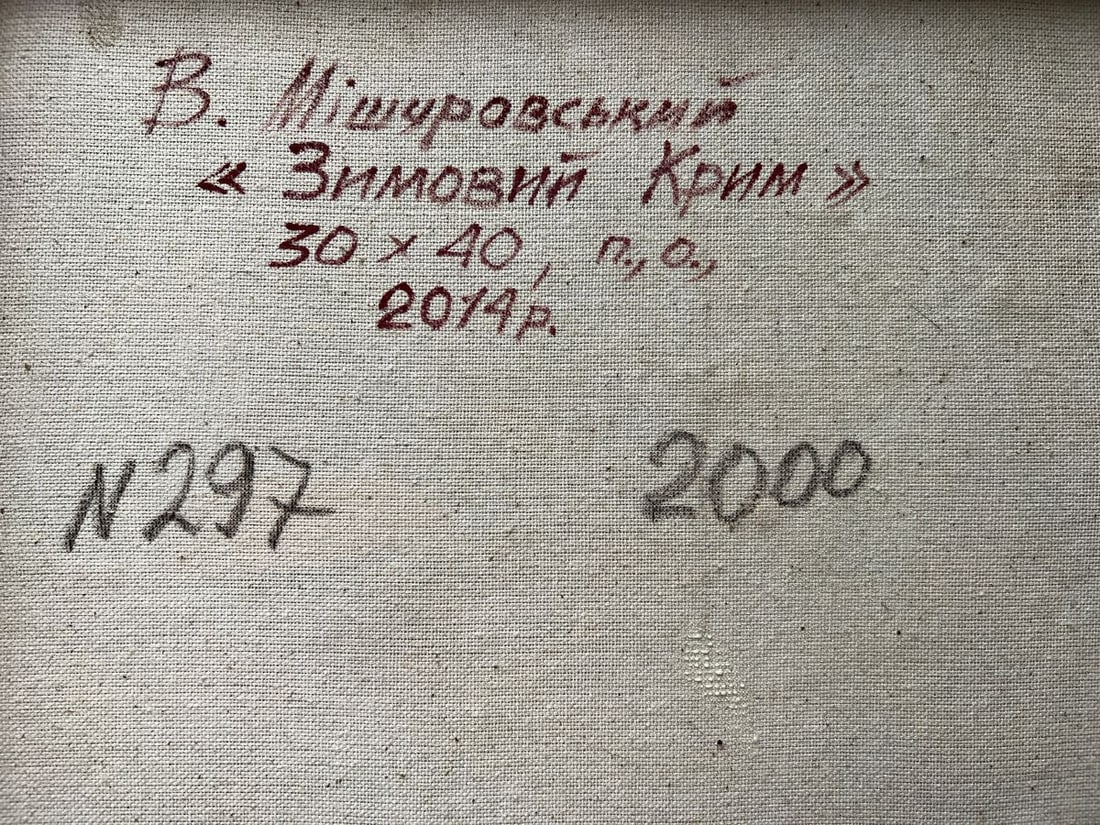 В. Мішуровський
« Зимовий Крим »
30 х 40, п., о.,
2014р.
N297 2000